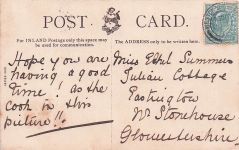 POST CARD.
For INLAND Postage only this space may be used for communication.
The ADDRESS only to be written here.
Hope you are
having a good
time! as the
cook in this
picture!!
Miss Ethel Summers
Julian Cottage
Eastington
Nr Stonehouse
Gloucestershire